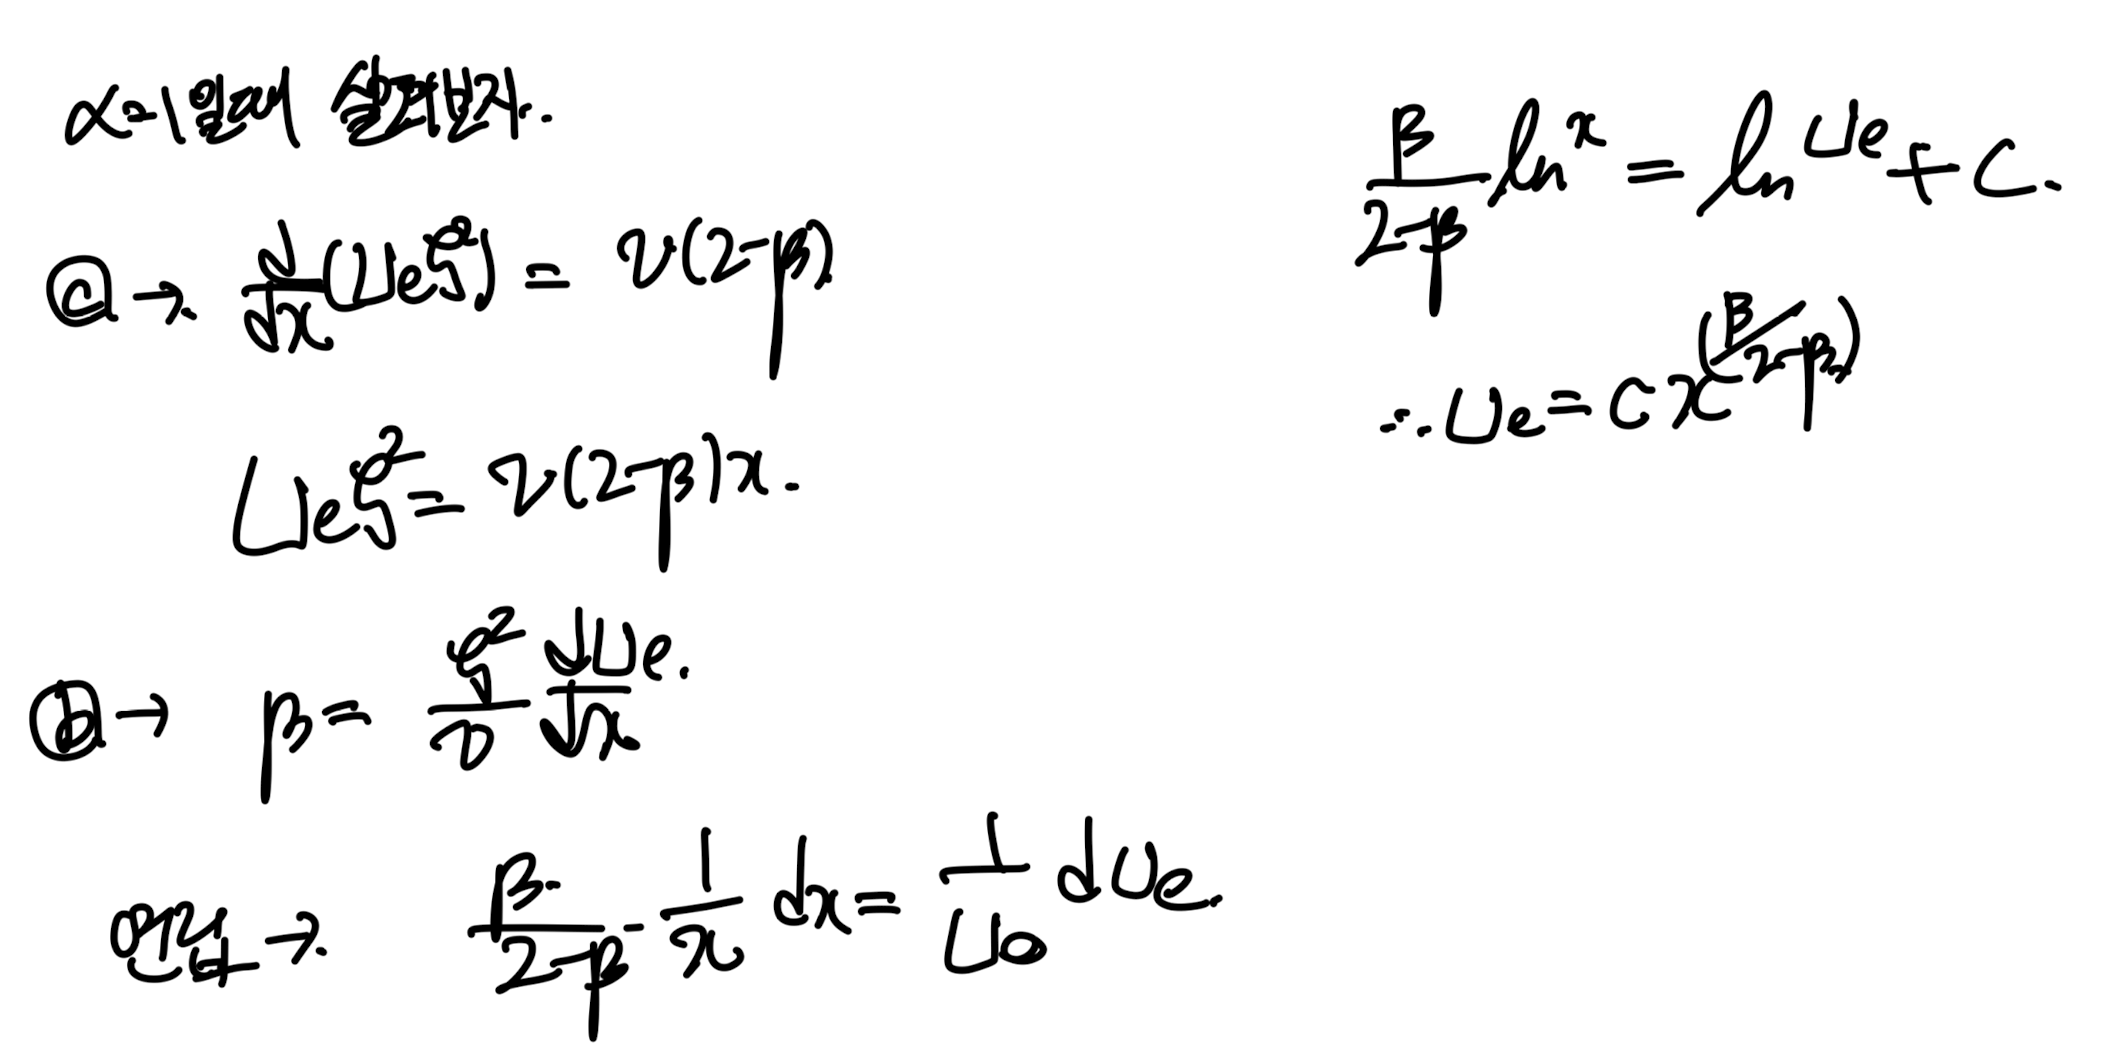 α=1일때 살펴보자.
ⓒ → d/dx (Ueξ²) = ν(2-β)
Ueξ² = ν(2-β)x.
ⓑ → β = ξ²/ν dUe/dx.
연립 → β/(2-β) · 1/x dx = 1/Ue dUe.
β/(2-β) ln x = ln Ue + C.
∴ Ue = c x^(β/2-β)